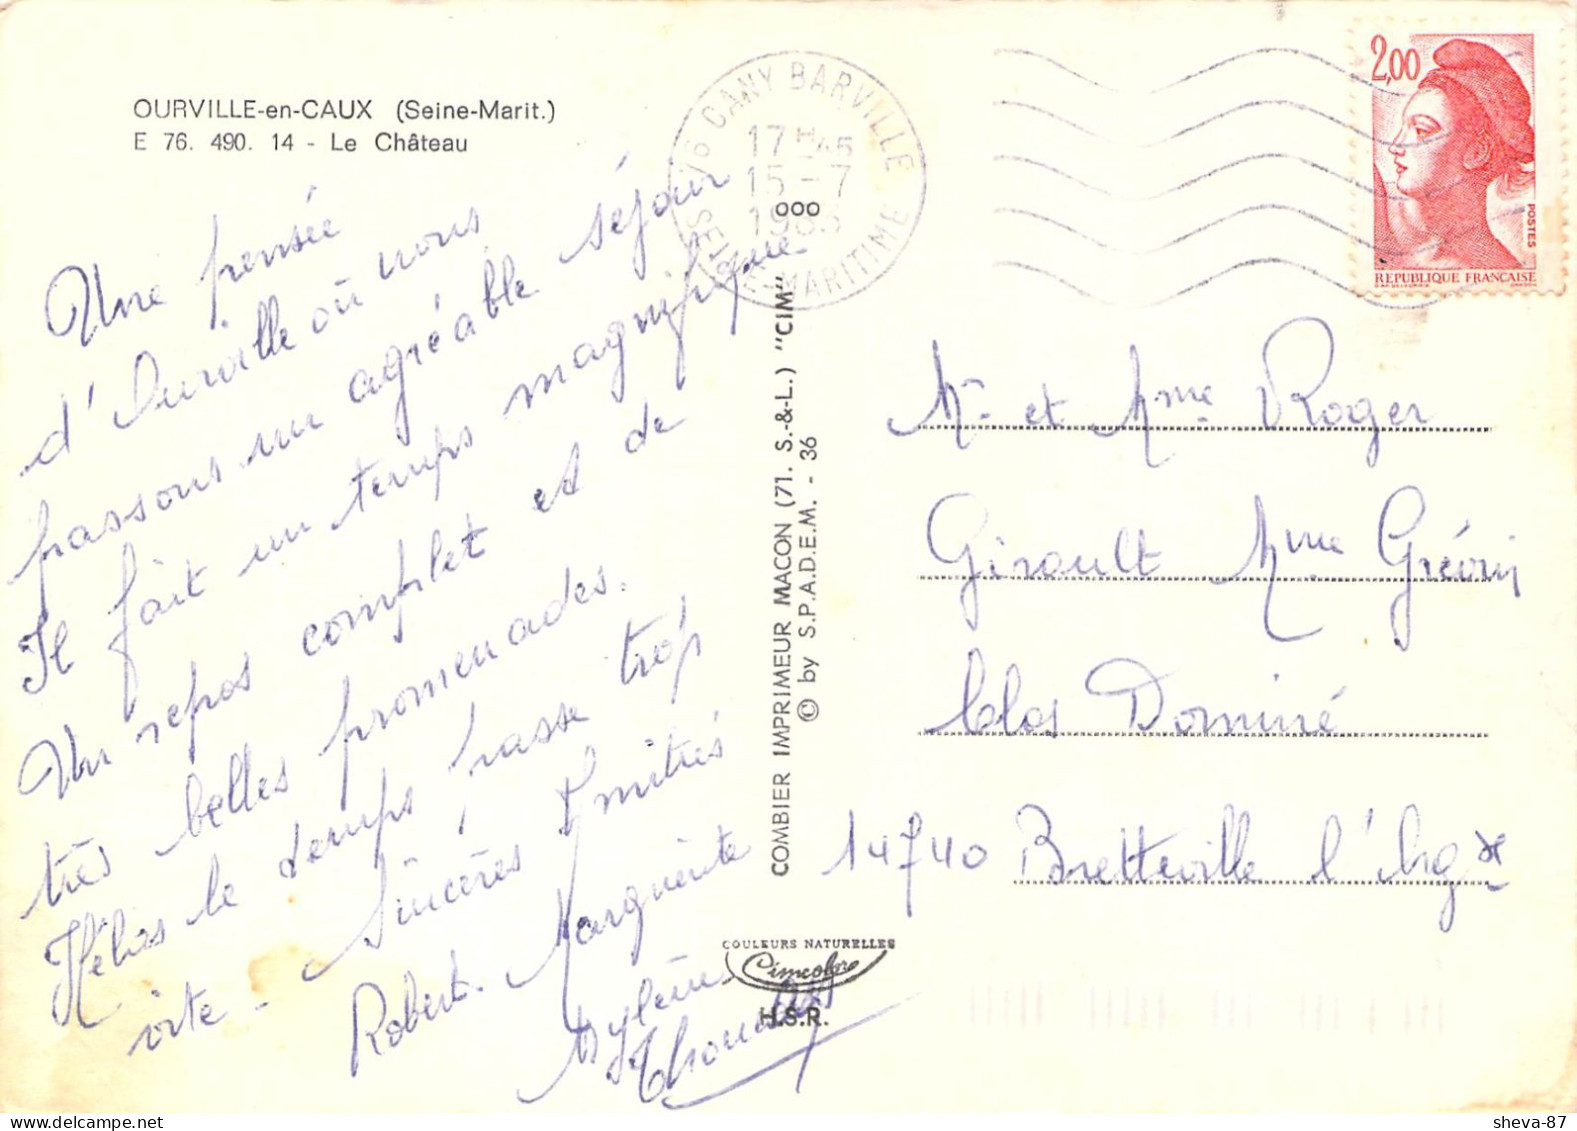 OURVILLE-en-CAUX (Seine-Marit.)
E 76. 490. 14 - Le Château
Une pensée
d'Ourville où nous
passons un agréable séjour
Il fait un temps magnifique
Un repos complet et de
très belles promenades.
Hélas le temps passe trop
vite - Sincères Amitiés
Robert. Marguerite
Mylène
76 CANY BARVILLE
17H45
15-7
1983
SEINE-MARITIME
ooo
2,00
POSTES
REPUBLIQUE FRANÇAISE
COMBIER IMPRIMEUR MACON (71. S.-&-L.) "CIM"
© by S.P.A.D.E.M. - 36
COULEURS NATURELLES
Cimcolor
H.S.R.
Mr et Mme Roger
Girault Mme Grévin
Clos Dominé
14740 Bretteville l'Org
sheva-87